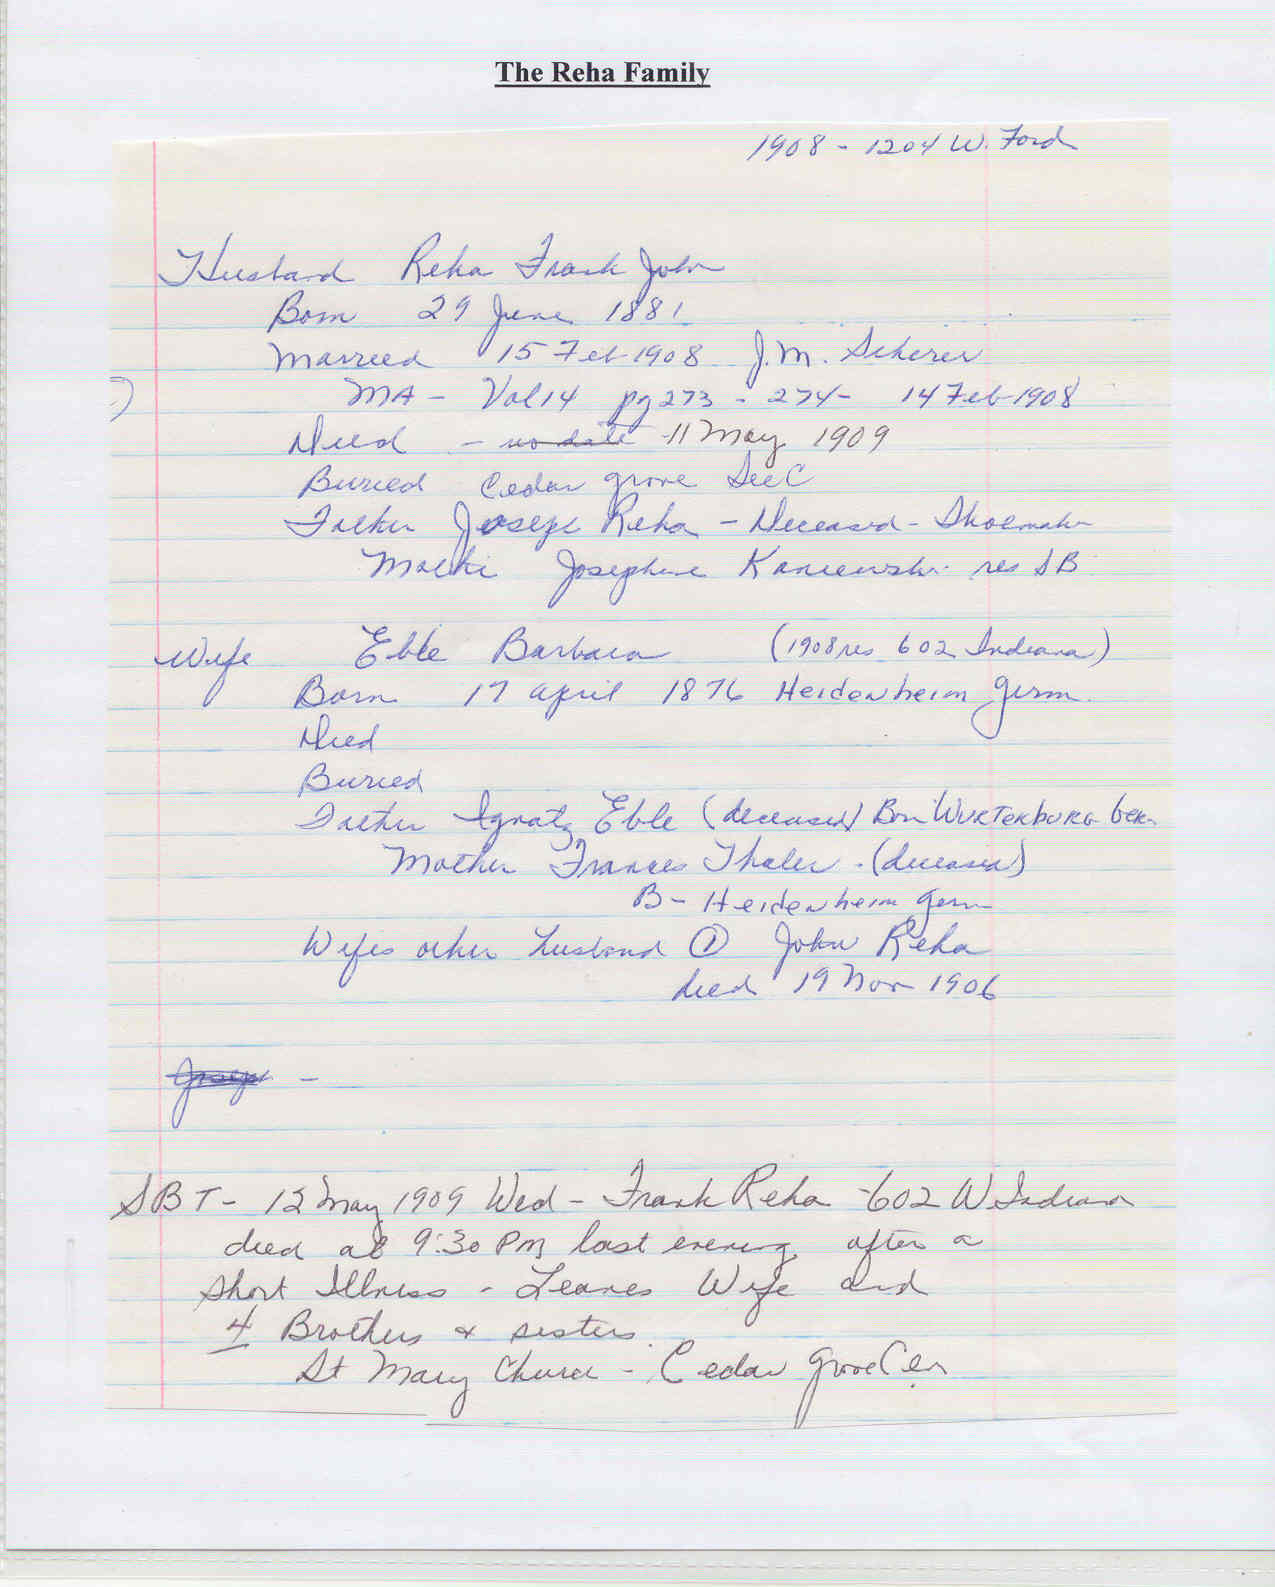 The Reha Family
1908 - 1204 W. Ford
Husband Reha Frank John
Born 29 June 1881
Married 15 Feb 1908 J.M. Scherer
MA - Vol 14 pg 273 - 274 - 14 Feb 1908
Died - no date 11 May 1909
Buried Cedar grove Sec C
Father Joseph Reha - Deceased - Shoemaker
Mother Josephine Kaniewski res SB
Wife Eble Barbara (1908 res 602 Indiana)
Born 17 April 1876 Heidenheim Germ.
Died
Buried
Father Ignatz Eble (deceased) Born WURTERBURG Ger.
Mother Frances Thaler - (deceased)
B - Heidenheim Germ
Wifes other husband ① John Reha
died 19 Nov 1906
Joseph -
SBT - 12 May 1909 Wed - Frank Reha - 602 W Indiana
died at 9:30 PM last evening after a
short Illness - Leaves Wife and
4 Brothers & sisters
St Mary Church - Cedar Grove Cem